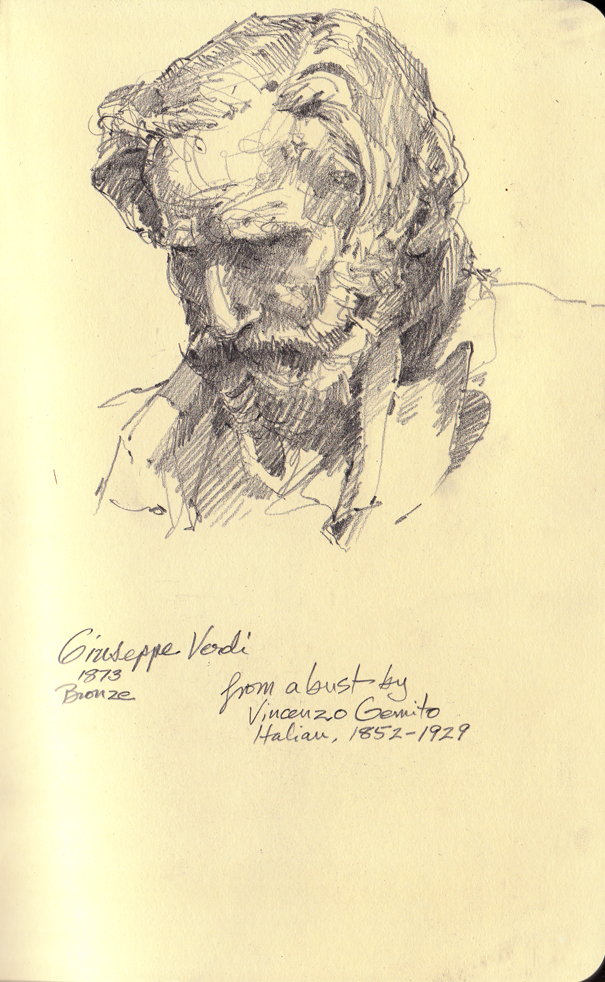 Giuseppe Verdi
1873
Bronze
from a bust by
Vincenzo Gemito
Italian, 1852-1929